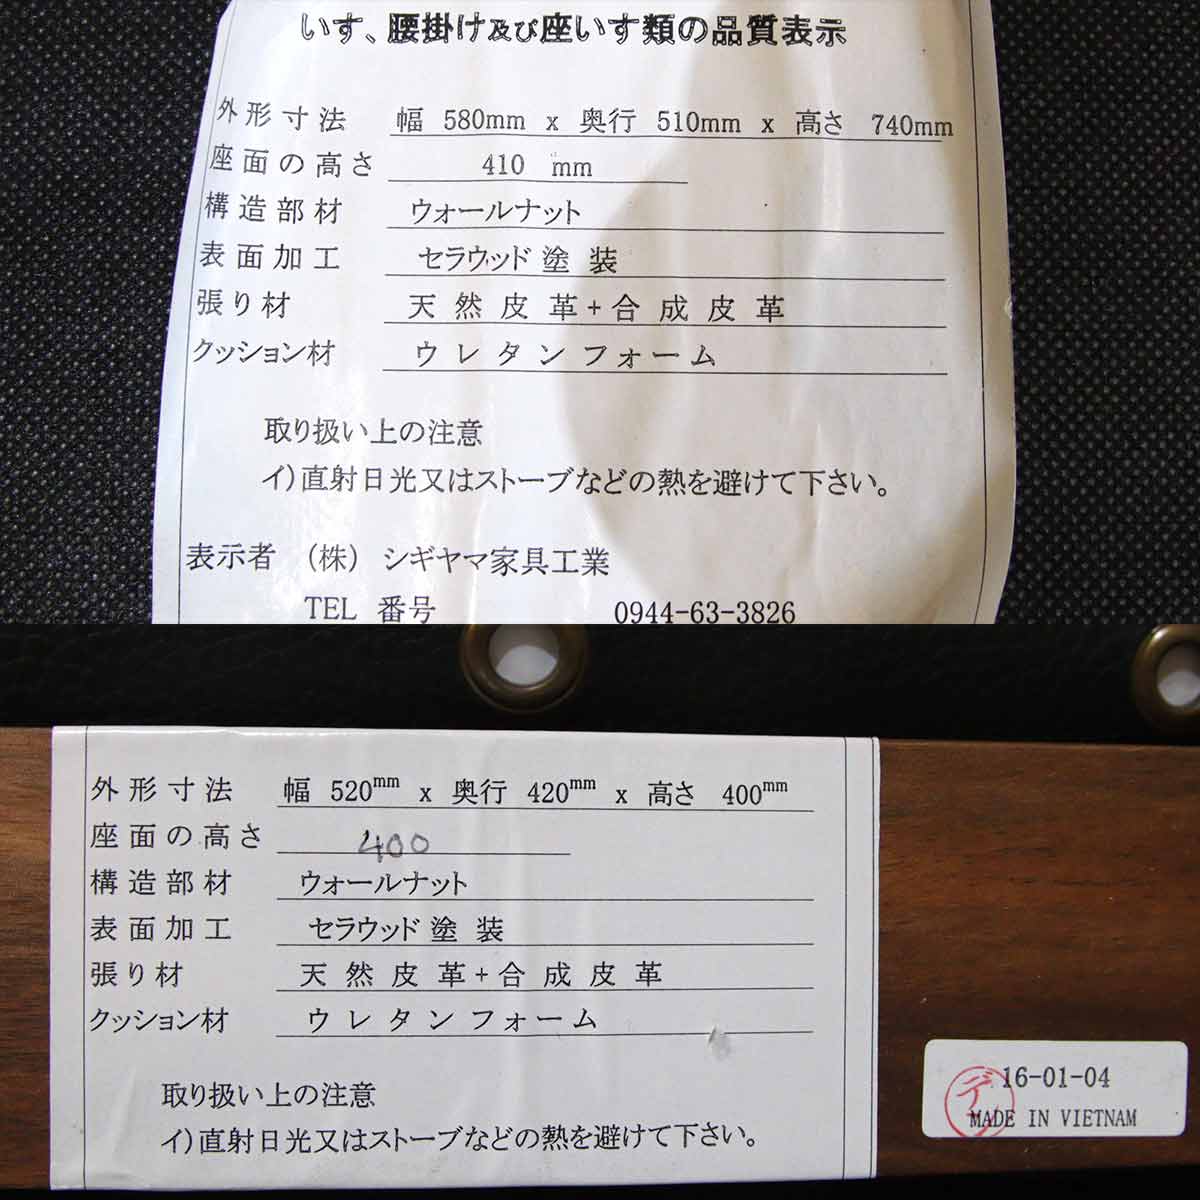 いす、腰掛け及び座いす類の品質表示
外形寸法 幅 580mm x 奥行 510mm x 高さ 740mm
座面の高さ 410 mm
構造部材 ウォールナット
表面加工 セラウッド塗装
張り材 天然皮革+合成皮革
クッション材 ウレタンフォーム
取り扱い上の注意
イ)直射日光又はストーブなどの熱を避けて下さい。
表示者 (株) シギヤマ家具工業
TEL 番号 0944-63-3826
外形寸法 幅 520mm x 奥行 420mm x 高さ 400mm
座面の高さ 400
構造部材 ウォールナット
表面加工 セラウッド塗装
張り材 天然皮革+合成皮革
クッション材 ウレタンフォーム
取り扱い上の注意
イ)直射日光又はストーブなどの熱を避けて下さい。
16-01-04
MADE IN VIETNAM